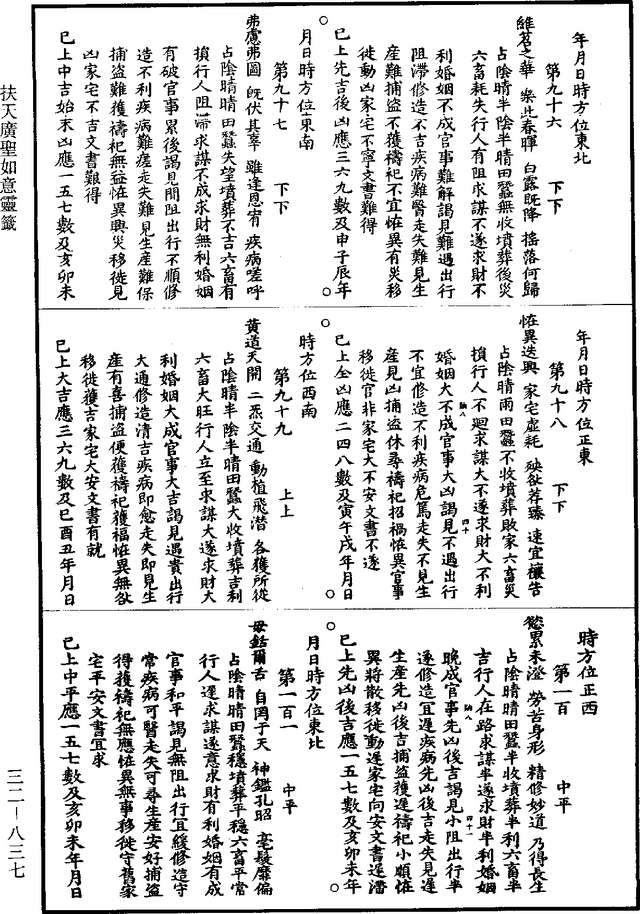 年月日時方位東北
第九十六　下下
維苕之華　樂此春暉　白露既降　搖落何歸
占陰晴半陰半晴田蠶無收墳葬後災
六畜耗失行人有阻求謀不遂求財不
利婚姻不成官事難解謁見難遇出行
阻滯修造不吉疾病難醫走失難見生
產難捕盜不獲禱祀不宜恠異有災移
徙動凶家宅不寧文書難得
已上先吉後凶應三六九數及申子辰年
月日時方位東南
第九十七　下下
弗慮弗圖　既伏其辜　雖逢恩宥　疾病嗟呼
占陰晴晴田蠶失望墳葬不吉六畜有
損行人阻滯求謀不成求財無利婚姻
有破官事累後謁見間阻出行不順修
造不利疾病難瘥走失難見生產難保
捕盜難獲禱祀無益恠異興災移徙見
凶家宅不吉文書難得
已上中吉始末凶應一五七數及亥卯未
年月日時方位正東
第九十八　下下
恠異迭興　家宅虛耗　殃欲荐臻　速宜禳告
占陰晴雨田蠶不收墳葬敗家六畜災
損行人不廻求謀大不遂求財大不利
婚姻大不成官事大凶謁見不遇出行
不宜修造不利疾病危篤走失不見生
產見凶捕盜休尋禱祀招禍恠異官事
移徙官非家宅大不安文書不遂
已上全凶應二四八數及寅午戌年月日
時方位西南
第九十九　上上
黃道天開　二炁交通　動植飛潛　各獲所從
占陰晴半陰半晴田蠶大收墳葬吉利
六畜大旺行人立至求謀大遂求財大
利婚姻大成官事大吉謁見遇貴出行
大通修造清吉疾病即愈走失即見生
產有喜捕盜便獲禱祀獲福恠異無咎
移徙獲吉家宅大安文書有就
已上大吉應三六九數及巳酉丑年月日
時方位正西
第一百　中平
慾累未澄　勞苦身形　精修妙道　乃得長生
占陰晴晴田蠶半收墳葬半利六畜半
吉行人在路求謀半遂求財半利婚姻
晚成官事先凶後吉謁見小阻出行半
遂修造宜遲疾病先凶後吉走失見遲
生產先凶後吉捕盜獲遲禱祀小順恠
異將散移徙動遲家宅向安文書遲潘
已上先凶後吉應一五七數及亥卯未年
月日時方位東北
第一百一　中平
毋銛爾舌　自罔于天　神鑑孔昭　毫髮靡偏
占陰晴晴田蠶穩墳葬平穩六畜平常
行人遲求謀遂意求財有利婚姻有成
官事和平謁見無阻出行宜緩修造守
常疾病可醫走失可尋生產安好捕盜
得獲禱祀無應恠異無事移徙守舊家
宅平安文書宜求
已上中平應一五七數及亥卯未年月日
扶天廣聖如意靈籤
三二—八三七